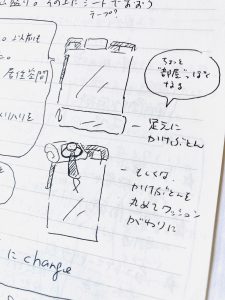 その上にシートでおおう
テープ?
居住空間
メリハリを
ちょっと
"部屋"っぽく
なる
足元に
かけぶとん
もしくは、
かけぶとんを
丸めてクッション
がわりに
に change